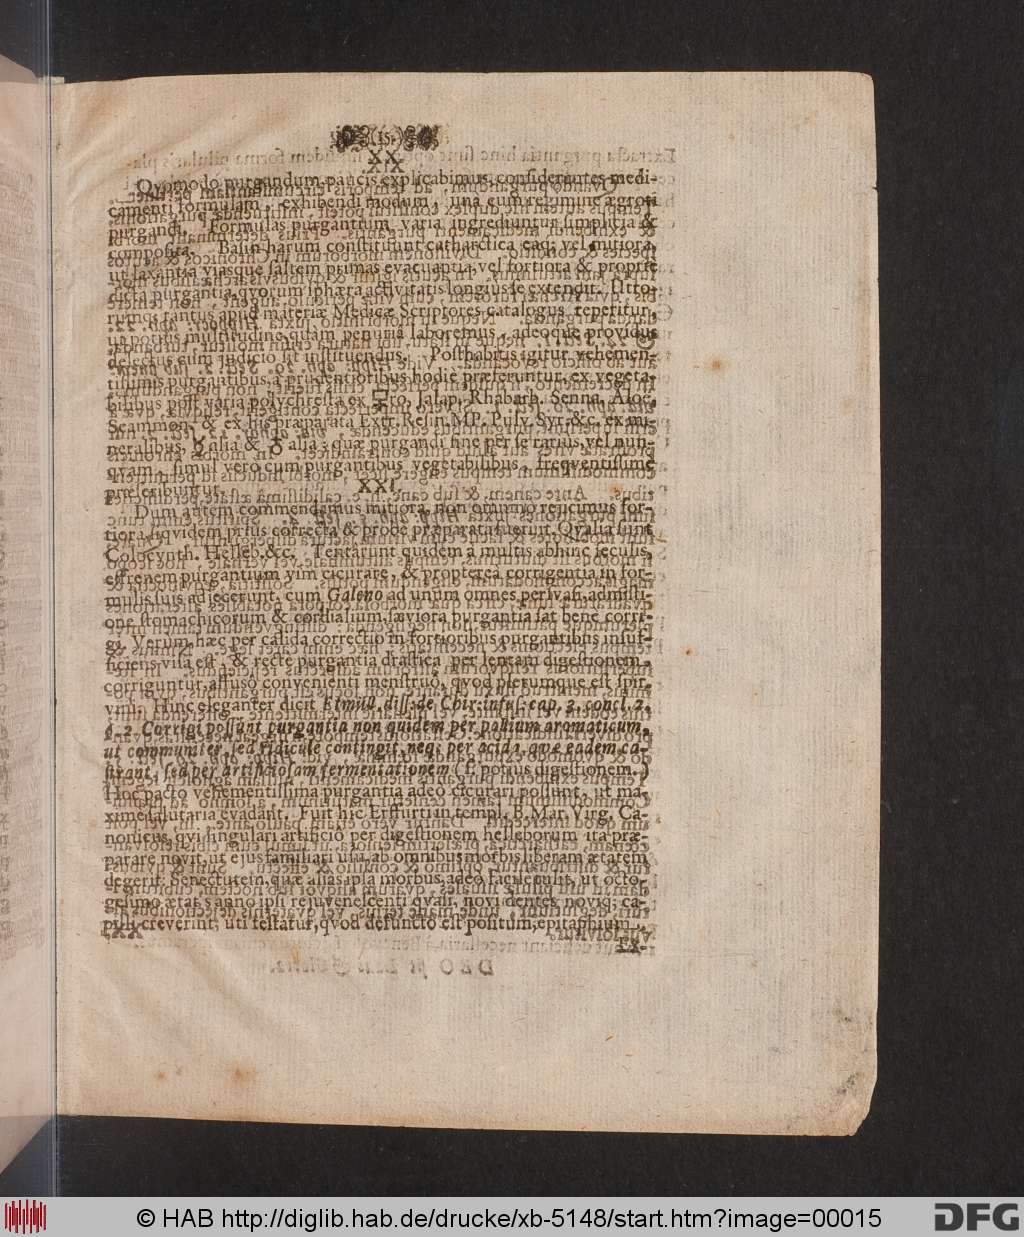 (15.)
XX.
Qvomodo purgandum, paucis explicabimus, considerantes medi-
camenti formulam, exhibendi modum, una cum regimine ægroti
purgandi. Formulas purgantium varia ingrediuntur simplicia &
composita. Basin harum constituunt cathartica eaq; vel mitiora,
ut laxantia viasque saltem primas evacuantia, vel fortiora & proprie
dicta purgantia, qvorum sphæra activitatis longius se extendit. Utro-
rumq; tantus apud materiæ Medicæ Scriptores catalogus reperitur,
ut potius multitudine qvam penuria laboremus, adeoque providus
delectus cum judicio sit instituendus. Posthabitis igitur vehemen-
tissimis purgantibus, à prudentioribus hodie præferuntur, ex vegeta-
bilibus post varia polychresta ex ro, Jalap. Rhabarb. Senna, Aloe,
Scammon. & ex his præparata Extr. Resin. MP. Pulv. Syr. &c. ex mi-
neralibus, ♉ alia & ☿ alia; quæ purgandi fine per se rarius, vel nun-
qvam, simul vero cum purgantibus vegetabilibus, freqventissime
præscribuntur.
XXI.
Dum autem commendamus mitiora, non omnino rejicimus for-
tiora, siqvidem prius correcta & probe præparata fuerint. Qvalia sunt
Colocynth. Helleb. &c. Tentarunt quidem à multis abhinc seculis,
effrenem purgantium vim cicurare, & propterea corrigentia in for-
mulis suis adjecerunt, cum Galeno ad unum omnes persvasi, admisti-
one stomachicorum & cordialium, sæviora purgantia sat bene corri-
gi. Verum hæc per calida correctio in fortioribus purgantibus insuf-
ficiens visa est, & recte purgantia drastica per lentam digestionem,
corriguntur, affuso convenienti menstruo, qvod plerumque est spir.
vini. Hinc eleganter dicit Etmüll. diss: de Chir: infus: cap. 3. concl. 2.
§. 2. Corrigi possunt purgantia non quidem per passium aromaticum,
ut communiter, sed ridicule contingit, neq; per acida, qvæ eadem ca-
strant, sed per artificiosam fermentationem (s. potius digestionem.)
Hoc pacto vehementissima purgantia adeò cicurari possunt, ut ma-
xime salutaria evadant. Fuit hic Erffurti in templ. B. Mar. Virg. Ca-
nonicus, qvi singulari artificio per digestionem helleborum ita præ-
parare novit, ut ejus familiari usu, ab omnibus morbis liberam ætatem
degerit. Senectutem, quæ alias ipsa morbus, adeo facile tulit, ut octo-
gesimo ætatis anno ipsi rejuvenescenti qvasi, novi dentes noviq; ca-
pilli creverint; uti testatur, qvod defuncto est positum, epitaphium.
Ex-
© HAB http://diglib.hab.de/drucke/xb-5148/start.htm?image=00015
DFG